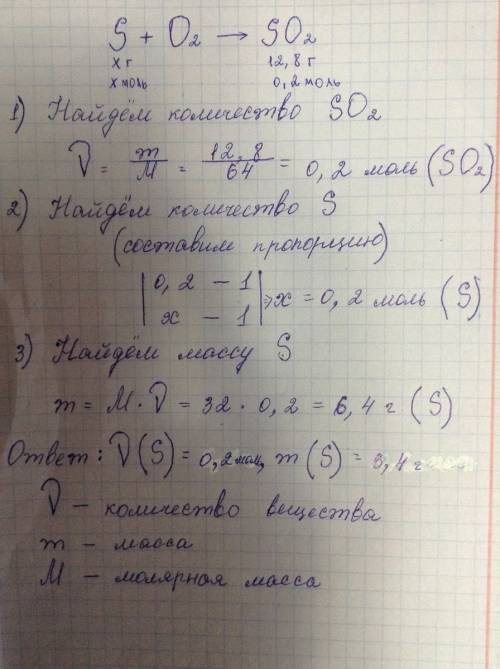 S + O₂ → SO₂
х г 12,8 г
х моль 0,2 моль
1) Найдём количество SO₂
ν = m/M = 12,8/64 = 0,2 моль (SO₂)
2) Найдём количество S
(составим пропорцию)
0,2 – 1
х – 1 | ⇒ х = 0,2 моль (S)
3) Найдём массу S
m = M · ν = 32 · 0,2 = 6,4 г (S)
Ответ: ν(S) = 0,2 мол, m(S) = 3,4 г
ν – количество вещества
m – масса
M – молярная масса